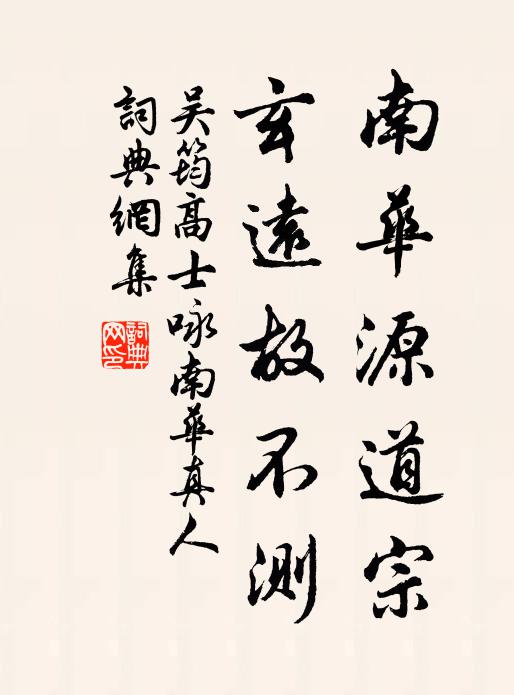 南華源道宗
玄遠故不測
吴筠高士咏南華真人
詞典網集
詞典网印